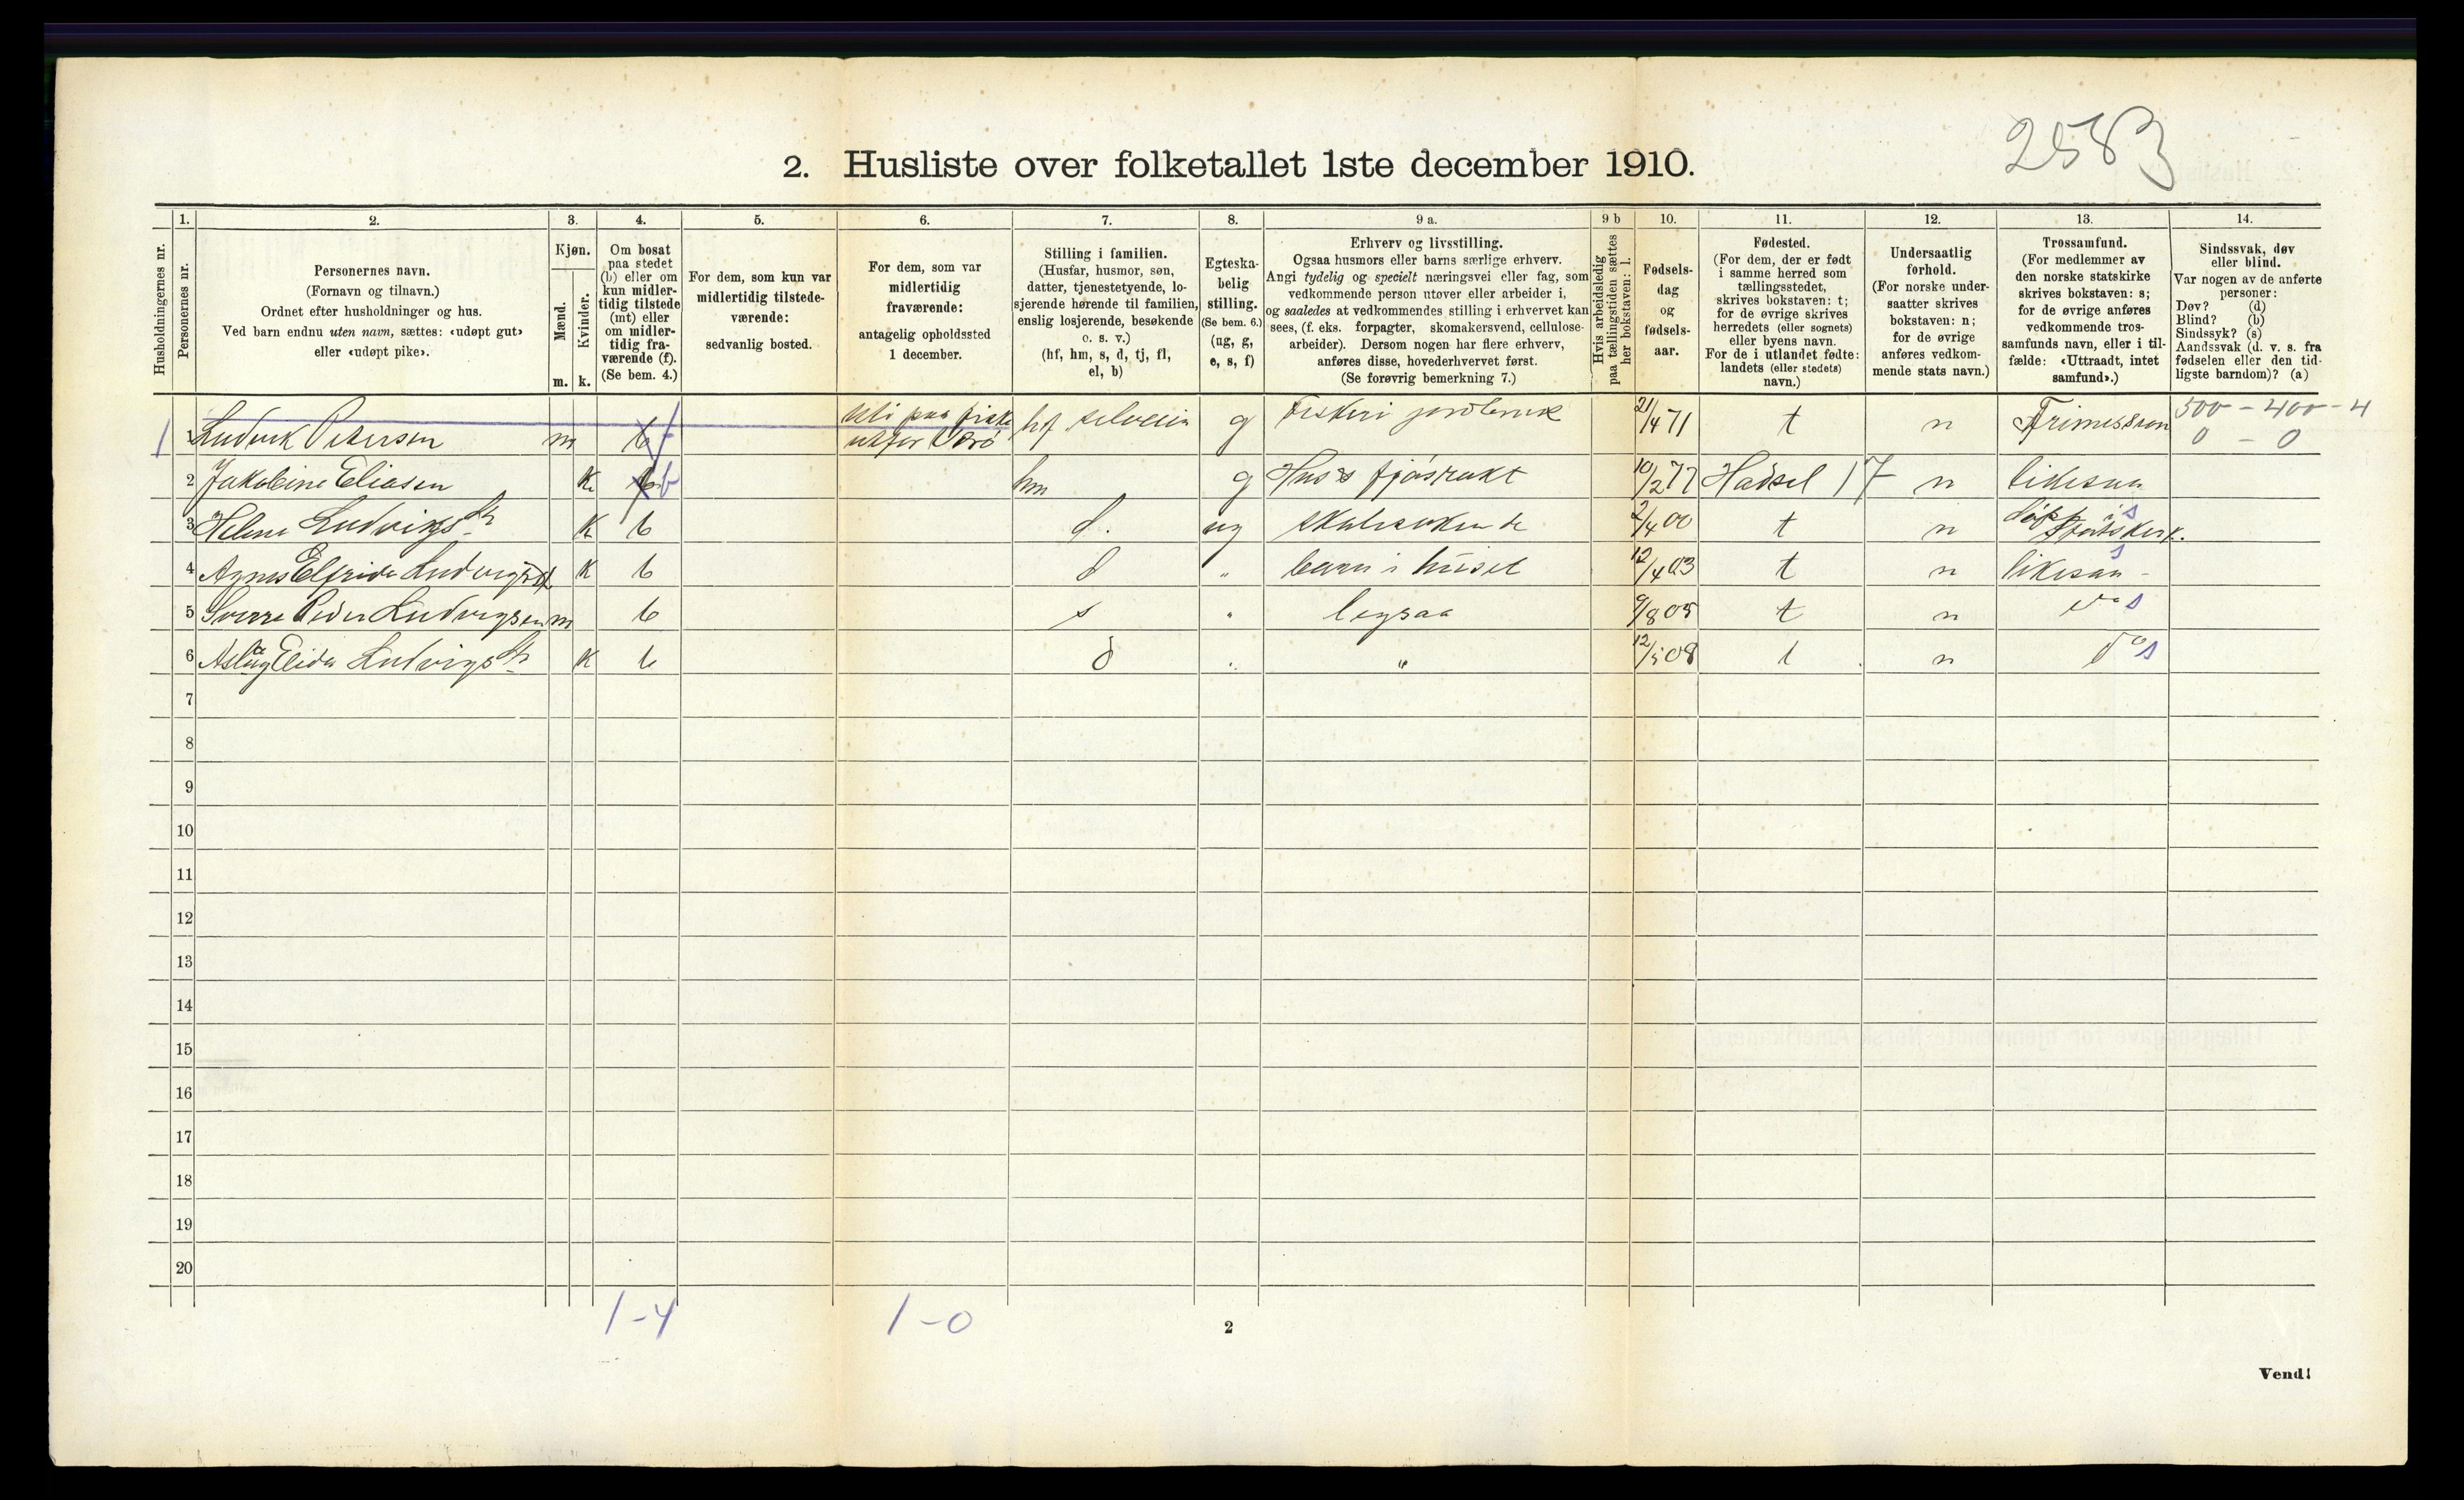 2583
2. Husliste over folketallet 1ste december 1910.
Husholdningernes nr.
1.
Personernes nr.
2.
Personernes navn.
(Fornavn og tilnavn.)
Ordnet efter husholdninger og hus.
Ved barn endnu uten navn, sættes: «udøpt gut»
eller «udøpt pike».
3.
Kjøn.
Mænd.
Kvinder.
m. k.
4.
Om bosat
paa stedet
(b) eller om
kun midler-
tidig tilstede
(mt) eller
om midler-
tidig fra-
værende (f).
(Se bem. 4.)
5.
For dem, som kun var
midlertidig tilstede-
værende:
sedvanlig bosted.
6.
For dem, som var
midlertidig
fraværende:
antagelig opholdssted
1 december.
7.
Stilling i familien.
(Husfar, husmor, søn,
datter, tjenestetyende, lo-
sjerende hørende til familien,
enslig losjerende, besøkende
o. s. v.)
(hf, hm, s, d, tj, fl,
el, b)
8.
Egteska-
belig
stilling.
(Se bem. 6.)
(ug, g,
e, s, f)
9 a.
Erhverv og livsstilling.
Ogsaa husmors eller barns særlige erhverv.
Angi tydelig og specielt næringsvei eller fag, som
vedkommende person utøver eller arbeider i,
og saaledes at vedkommendes stilling i erhvervet kan
sees, (f. eks. forpagter, skomakersvend, cellulose-
arbeider). Dersom nogen har flere erhverv,
anføres disse, hovederhvervet først.
(Se forøvrig bemerkning 7.)
9 b
Hvis arbeidsledig
paa tællingstiden sættes
her bokstaven: l.
10.
Fødsels-
dag
og
fødsels-
aar.
11.
Fødested.
(For dem, der er født
i samme herred som
tællingsstedet,
skrives bokstaven: t;
for de øvrige skrives
herredets (eller sognets)
eller byens navn.
For de i utlandet fødte:
landets (eller stedets)
navn.)
12.
Undersaatlig
forhold.
(For norske under-
saatter skrives
bokstaven: n;
for de øvrige
anføres vedkom-
mende stats navn.)
13.
Trossamfund.
(For medlemmer av
den norske statskirke
skrives bokstaven: s;
for de øvrige anføres
vedkommende tros-
samfunds navn, eller i til-
fælde: «Uttraadt, intet
samfund».)
14.
Sindssvak, døv
eller blind.
Var nogen av de anførte
personer:
Døv? (d)
Blind? (b)
Sindssyk? (s)
Aandssvak (d. v. s. fra
fødselen eller den tid-
ligste barndom)? (a)
1 1 Ludvik Petersen m b f Uti paa fiske utfor Værø hf selveier g Fiskeri jordbruk 21/4 71 t n Frimission 500 - 400 - 4 0 - 0
2 Jakobine Eliasen k b hm g Hus & fjøsrøkt 10/2 77 Hadsel 17 n likesaa
3 Helene Ludvigsdtr k b d. ug skolesøkende 2/4 00 t n døpt i statskirk. s
4 Agnes Elfrida Ludvigsdtr k b d " barn i huset 12/4 03 t n likesaa s
5 Sverre Peder Ludvigsen m b s " ligsaa 9/8 05 t n do s
6 Aslaug Elida Ludvigsdtr k b d " " 12/5 08 t n do s
7
8
9
10
11
12
13
14
15
16
17
18
19
20
1-4 1-0
2
Vend!